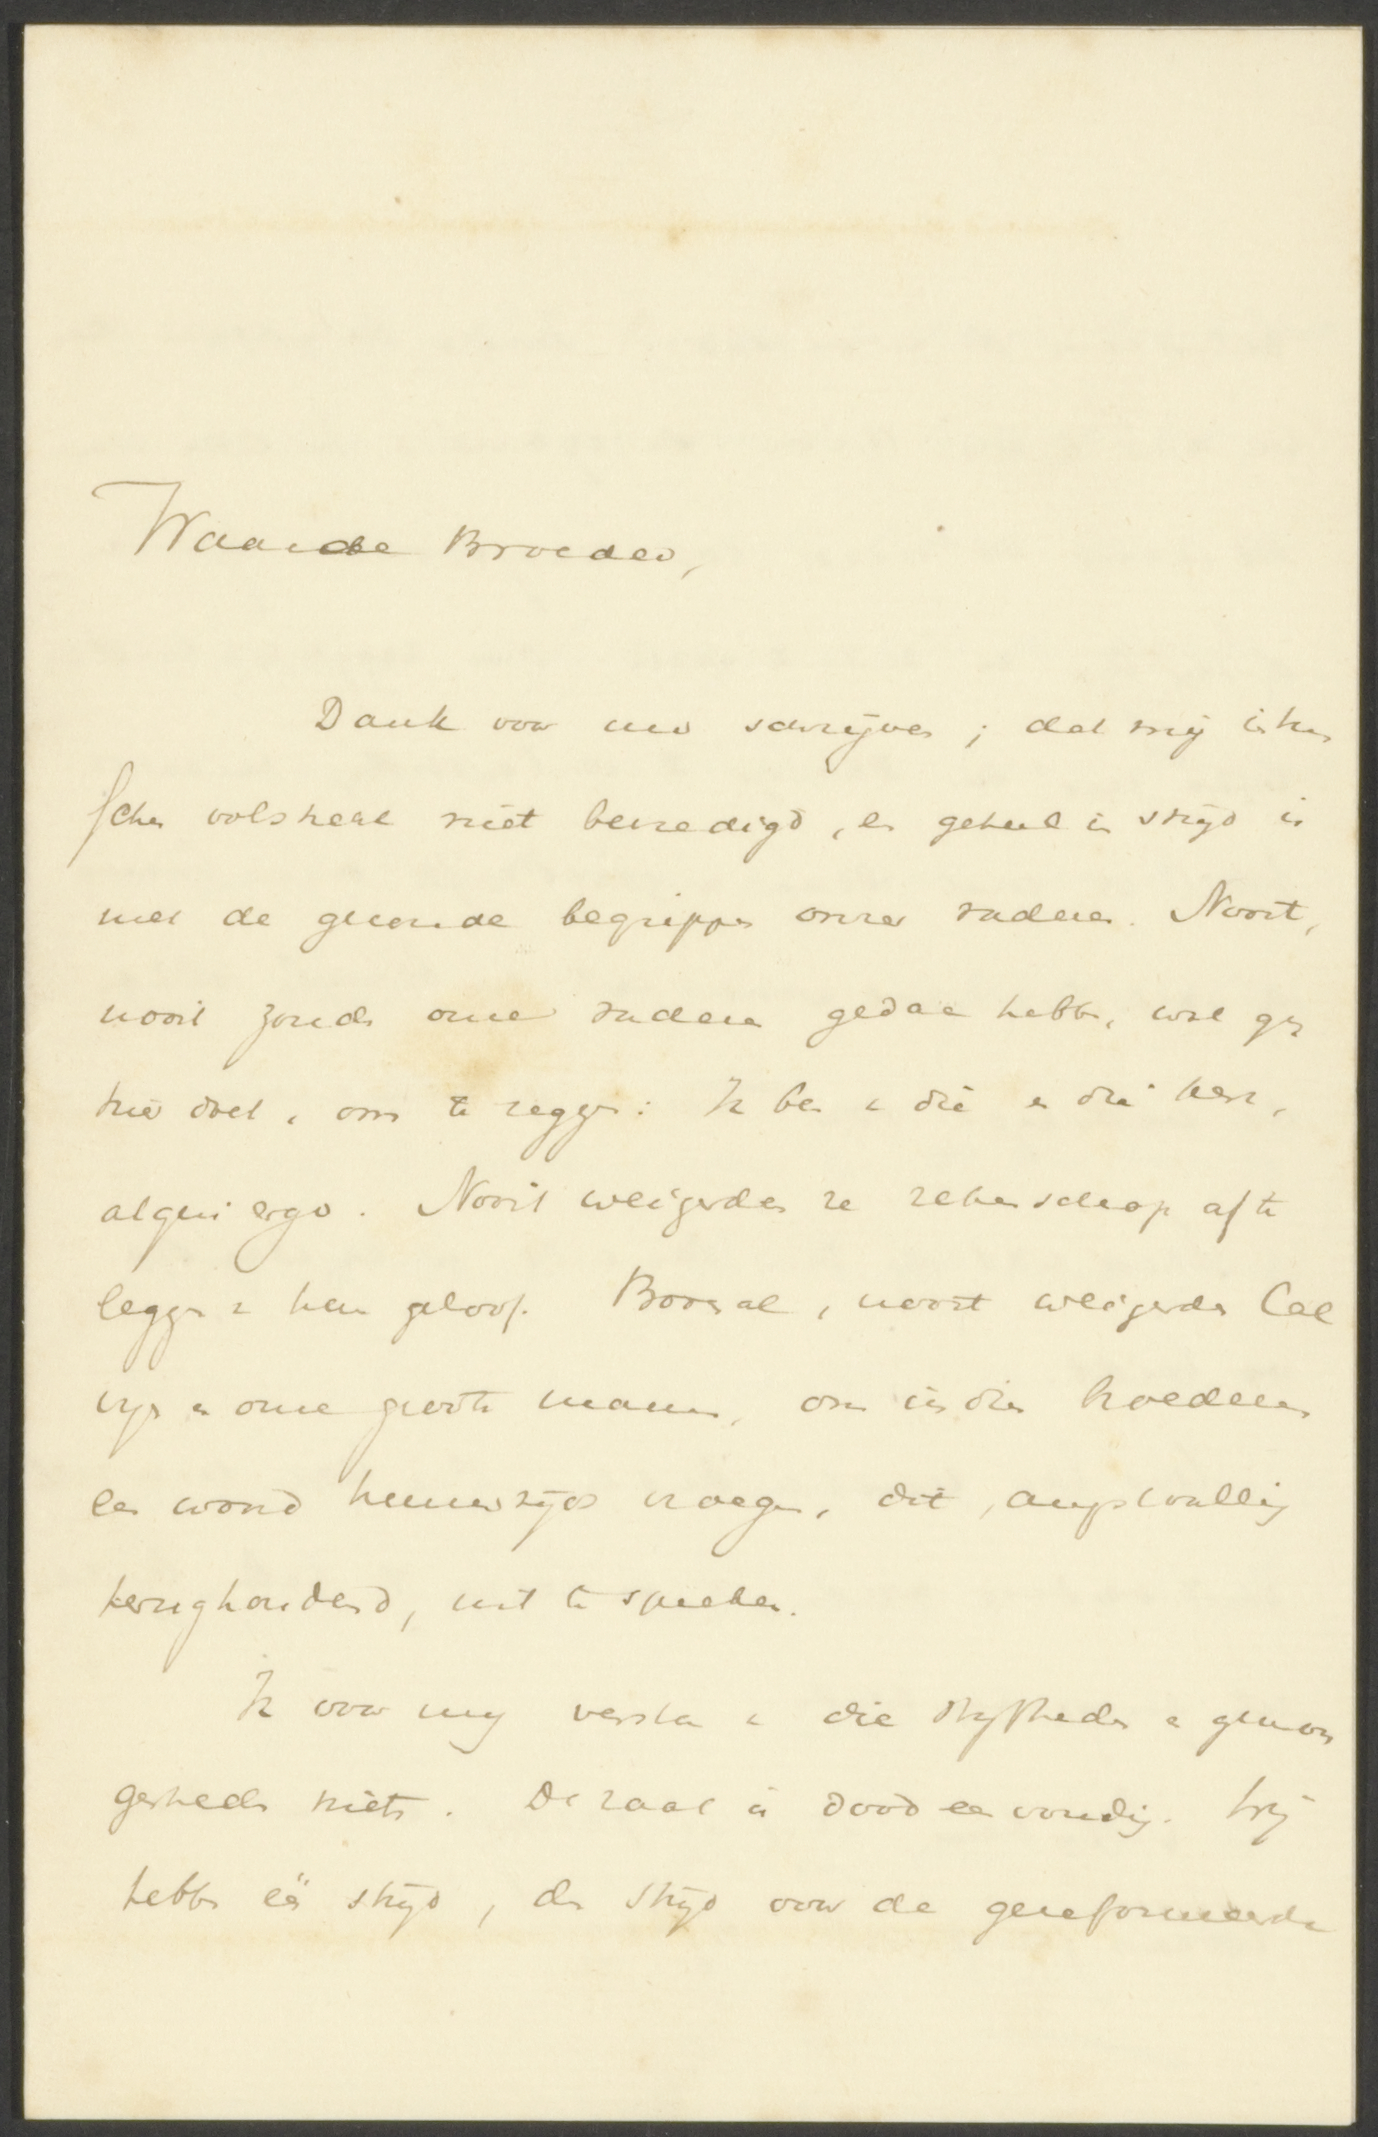 Waarde Broeder,
Dank voor uw schrijven; dat mij intus
schen volstrekt niet bevredigd, en geheel in strijd is
met de gezonde begrippen onzer vaderen. Nooit,
nooit zouden onze vaderen gedaan hebben, wat gij
hier doet, om te zeggen: Ik ben in die en die kerk,
atqui ergo. Nooit weigerden ze rekenschap af te
leggen van hun geloof. Bovenal, nooit weigerden Cal
vijn en onze groote mannen, om indien broederen
een woord hunnerzijds vroegen, dit, angstvallig
terughoudend, uit te spreken.
Ik voor mij versta van die stijfheden en gewron
genheden niets. De zaak is doodeenvoudig. Wij
hebben één strijd, den strijd voor de gereformeerde